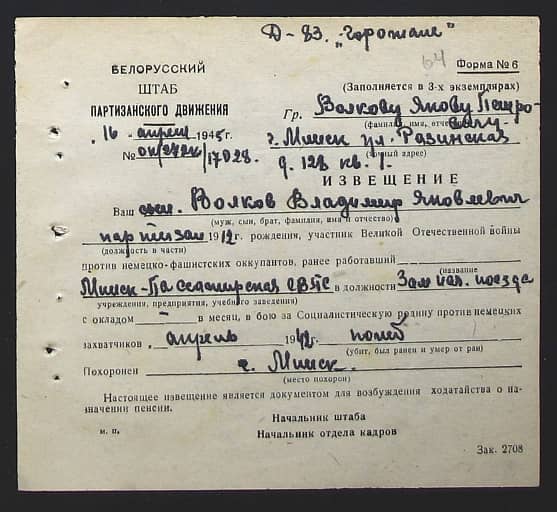 Д-83. „Горожане"
64
БЕЛОРУССКИЙ
ШТАБ
ПАРТИЗАНСКОГО ДВИЖЕНИЯ
„16 апреля 1945г.
№ 17028.
Форма № 6
(Заполняется в 3-х экземплярах)
Гр. Волкову Якову Петро-
вичу
(фамилия, имя, отчество)
г. Минск ул. Разинская
(точный адрес)
д. 128 кв. 1.
ИЗВЕЩЕНИЕ
Ваш сын. Волков Владимир Яковлевич
(муж, сын, брат, фамилия, имя и отчество)
партизан 1912г. рождения, участник Великой Отечественной войны
(должность в части)
против немецко-фашистских оккупантов, ранее работавший
(название
Минск-Пассажирская в должности Зам нач. поезда
учреждения, предприятия, учебного заведения)
с окладом — в месяц, в бою за Социалистическую родину против немецких
захватчиков „ апрель 1942г. погиб
(убит, был ранен и умер от ран)
Похоронен г. Минск.
(место похорон)
Настоящее извещение является документом для возбуждения ходатайства о на-
значении пенсии.
Начальник штаба
м. п.
Начальник отдела кадров
Зак. 2708